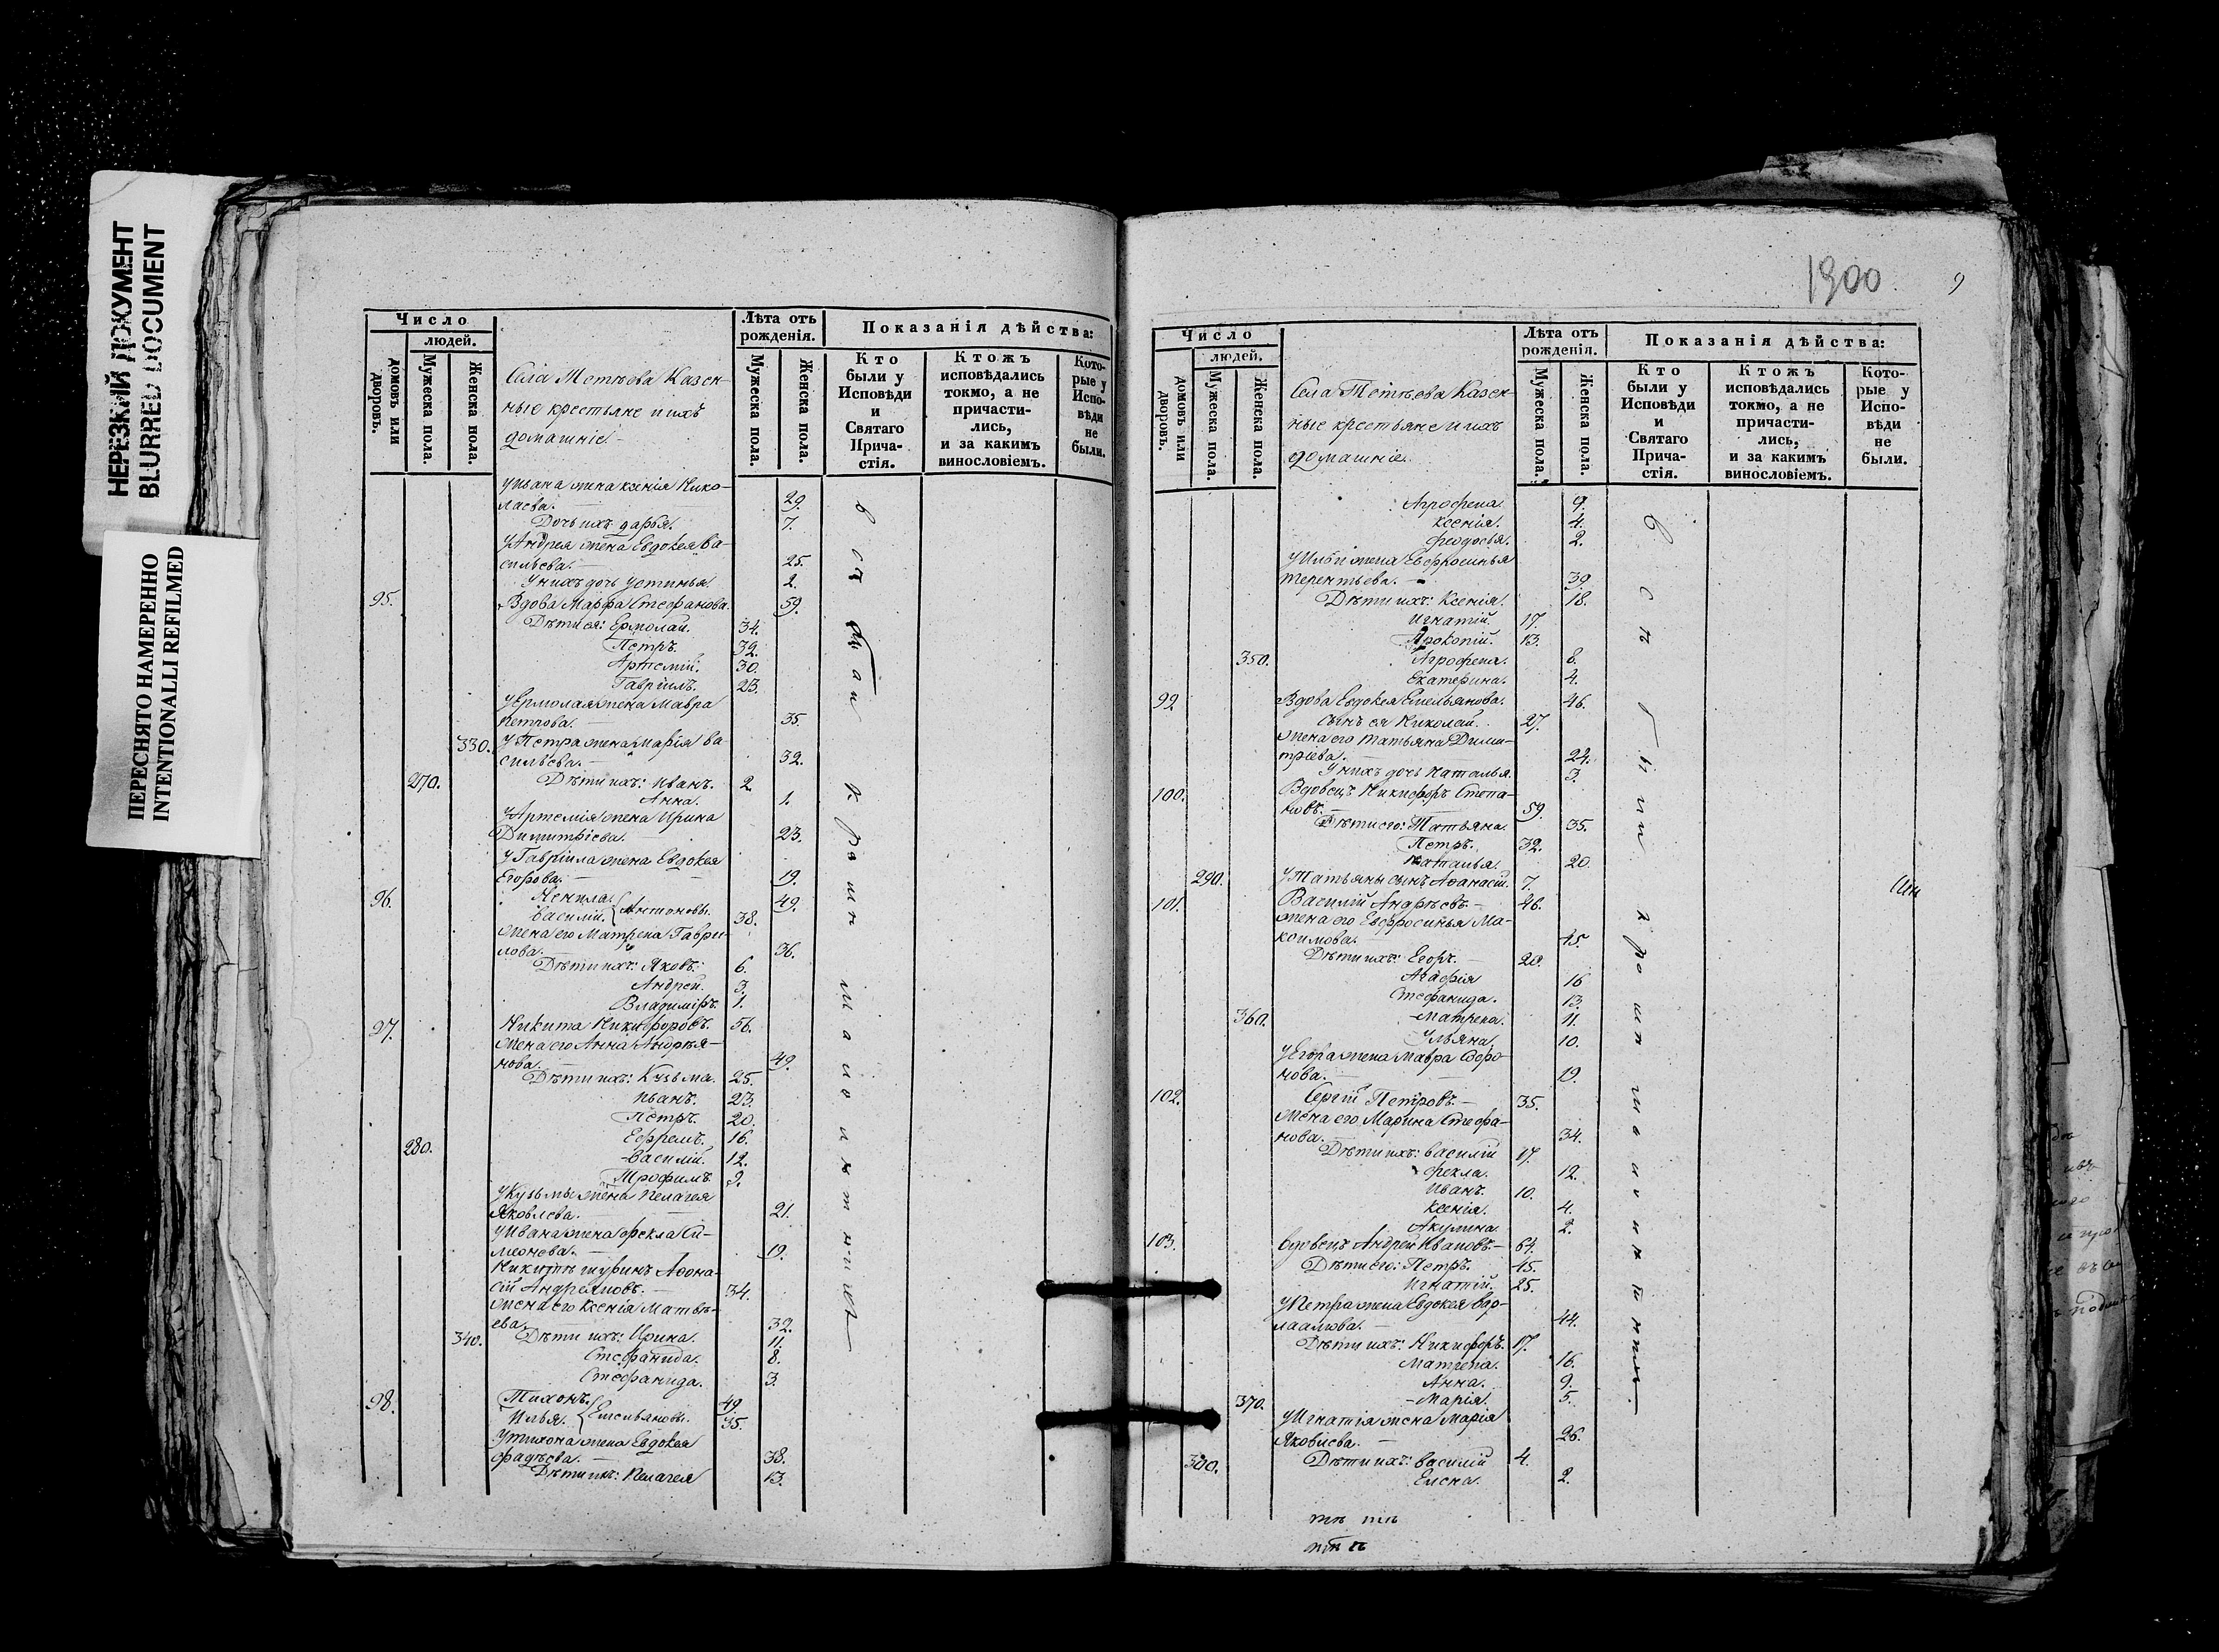 НЕРЕЗКИЙ ДОКУМЕНТ
BLURRED DOCUMENT
ПЕРЕСНЯТО НАМЕРЕННО
INTENTIONALLI REFILMED
Число
людей.
домовъ или дворовъ.
Мужеска пола.
Женска пола.
Села Метѣева Казен-
ные крестьяне и ихъ
домашніе
Лѣта отъ
рожденія.
Мужеска пола.
Женска пола.
Показанія дѣйства:
Кто
были у
Исповѣди
и
Святаго
Прича-
стія.
Ктожъ
исповѣдались
токмо, а не
причасти-
лись,
и за какимъ
винословіемъ.
Кото-
рые у
Испо-
вѣди
не
были.
У Ивана жена Ксенія Нико-
лаева. 29.
Дочь ихъ Дарья. 7.
У Андрея жена Евдокея Ва-
сильева. 25.
У нихъ дочь Устинья 2.
95. Вдова Марфа Стефанова. 59.
Дѣти ея: Ермолай. 34.
Петръ. 32.
Артемій. 30.
Гавріилъ. 23.
У Ермолая жена Мавра
Петрова. 35
330. У Петра жена Марія Ва-
сильева. 32.
270. Дѣти ихъ: Иванъ. 2.
Анна. 1.
У Артемія жена Ирина
Димитріева. 23.
У Гавріила жена Евдокея
Егорова. 19.
96. Ненила. 49.
Василій. Антоновы. 38.
Жена его Матрена Гаври-
лова. 36.
Дѣти ихъ: Яковъ. 6.
Андрей. 3.
Владиміръ. 1.
97. Никита Никифоровъ. 56.
Жена его Анна Андрѣя-
нова. 49.
Дѣти ихъ: Кузьма. 25.
Иванъ. 23.
Петръ. 20.
Ефремъ. 16.
280. Василій. 12.
Трофимъ. 9.
У Кузьмы жена Пелагея
Яковлева. 21.
У Ивана жена Фекла Си-
меонова. 19.
Никитѣ шуринъ Афона-
сій Андреяновъ. 34.
Жена его Ксенія Матвѣ-
ева. 32.
340. Дѣти ихъ: Ирина. 11.
Стефанида. 8.
Стефанида. 3.
98. Тихонъ. 49.
Илья. Емельяновы. 35.
У Тихона жена Евдокея
Фадѣева. 38.
Дѣти ихъ: Пелагея 13.
1900
9
Число
людей.
домовъ или дворовъ.
Мужеска пола.
Женска пола.
Села Метѣева Казен-
ные крестьяне и ихъ
домашніе.
Лѣта отъ
рожденія.
Мужеска пола.
Женска пола.
Показанія дѣйства:
Кто
были у
Исповѣди
и
Святаго
Прича-
стія.
Ктожъ
исповѣдались
токмо, а не
причасти-
лись,
и за какимъ
винословіемъ.
Кото-
рые у
Испо-
вѣди
не
были.
Агрофена. 9.
Ксенія. 4.
Феодосья. 2.
У Ильи жена Евфросинья
Терентьева. 39
Дѣти ихъ: Ксенія. 18.
Игнатій. 17.
Прокопій. 13.
350. Агрофена. 8.
Екатерина. 4.
99. Вдова Евдокея Емельянова. 46.
Сынъ ея Николай. 27.
Жена его Татьяна Дими-
тріева. 24.
У нихъ дочь Наталья. 3.
100. Вдовецъ Никифоръ Степа-
новъ. 59.
Дѣти его: Татьяна. 35.
Петръ. 32.
Наталья. 20
290. У Татьяны сынъ Афанасій. 7.
101. Василій Андрѣевъ. 46.
Жена его Евфросинья Ма-
ксимова. 45.
Дѣти ихъ: Егоръ. 20.
Агафія 16
Стефанида. 13.
360. Матрена. 11.
Ульяна. 10.
У Егора жена Мавра Софо-
нова. 19.
102. Сергій Петровъ. 35.
Жена его Марина Стефа-
нова. 34.
Дѣти ихъ: Василій 17.
Фекла. 12.
Иванъ. 10.
Ксенія. 4.
Акулина. 2.
103. Вдовецъ Андрей Ивановъ. 64.
Дѣти его: Петръ. 45.
Игнатій. 25.
У Петра жена Евдокея Вар-
лаамова. 44.
Дѣти ихъ: Никифоръ. 17.
Матрена. 16.
Анна. 9.
370. Марія. 5.
У Игнатія жена Марія
Яковлева. 26.
300. Дѣти ихъ: Василій 4.
Елена. 2.